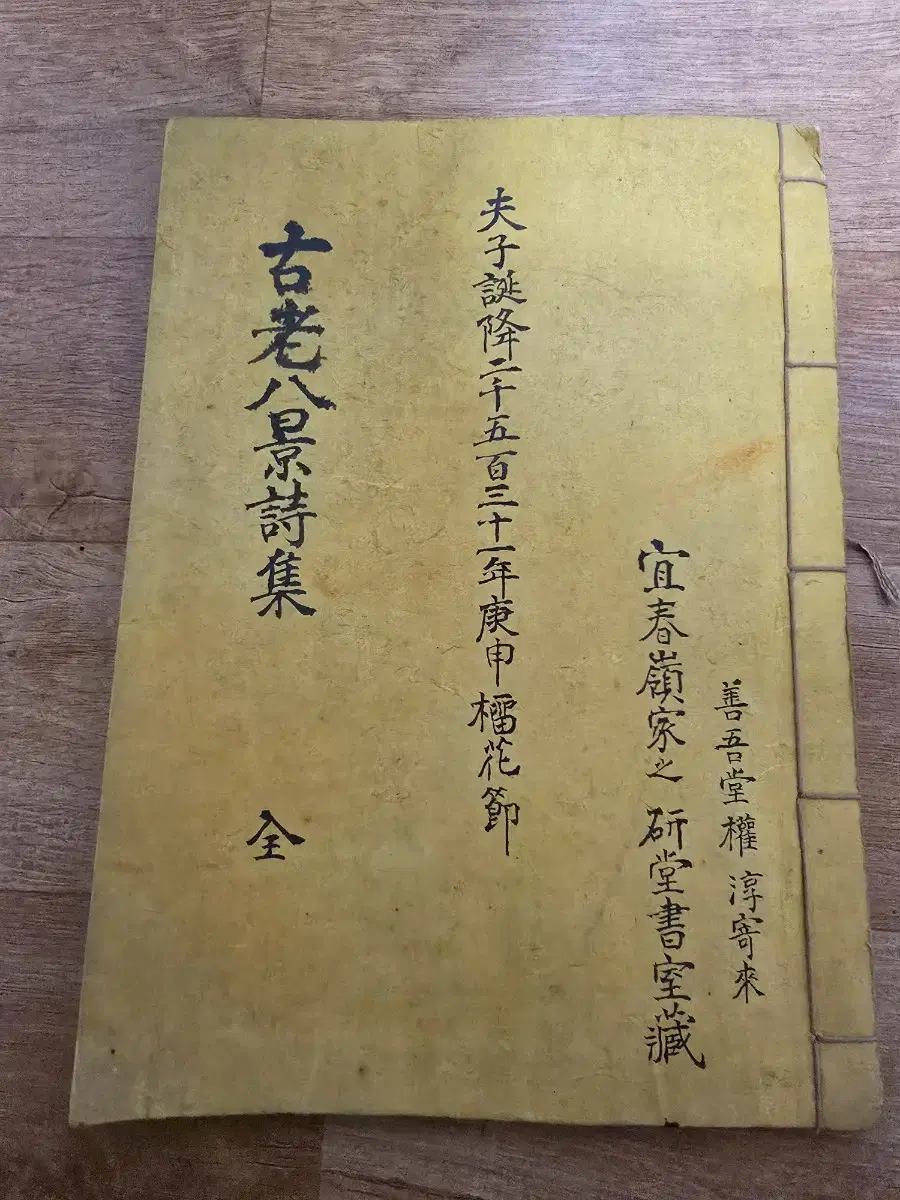 善吾堂權淳寄來
宜春嶺家之研堂書室藏
夫子誕降二千五百三十一年庚申榴花節
古老八景詩集 全